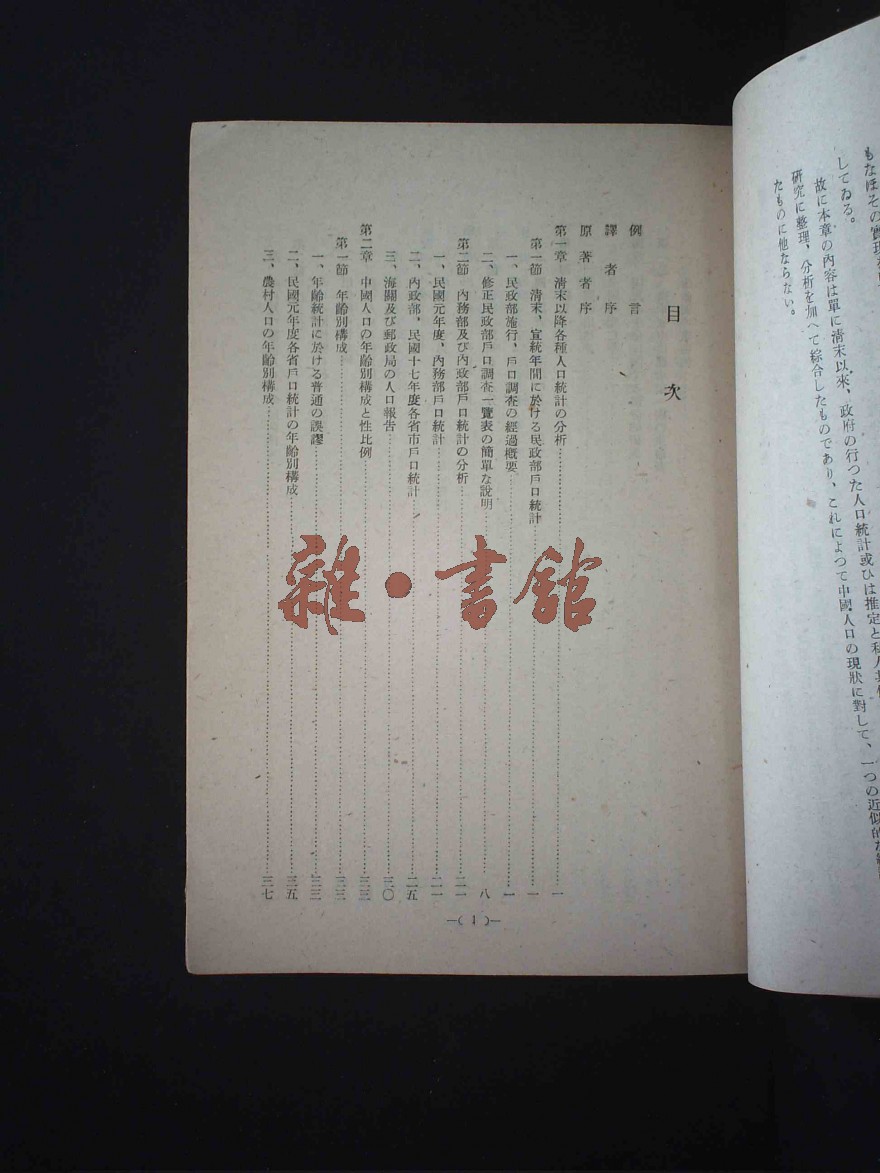 もなほその實現
してゐる。
故に本章の內容は單に淸末以來、政府の行つた人口統計或ひは推定と
硏究に整理、分析を加へて綜合したものであり、これによつて中國人口の現狀に對して、一つの近似的な
たものに他ならない。
目次
例言
譯者序
原著者序
第一章 淸末以降各種人口統計の分析…一
第一節 淸末、宣統年間に於ける民政部戶口統計…一
一、民政部施行、戶口調査の經過槪要…一
二、修正民政部戶口調査一覽表の簡單な說明…八
第二節 內務部及び內政部戶口統計の分析…二一
一、民國元年度、內務部戶口統計…二一
二、內政部、民國十七年度各省市戶口統計…二五
三、海關及び郵政局の人口報告…三〇
第二章 中國人口の年齡別構成と性比例…三三
第一節 年齡別構成…三三
一、年齡統計に於ける普通の誤謬…三三
二、民國元年度各省戶口統計の年齡別構成…三五
三、農村人口の年齡別構成…三七
—( 1 )—
雜・書館